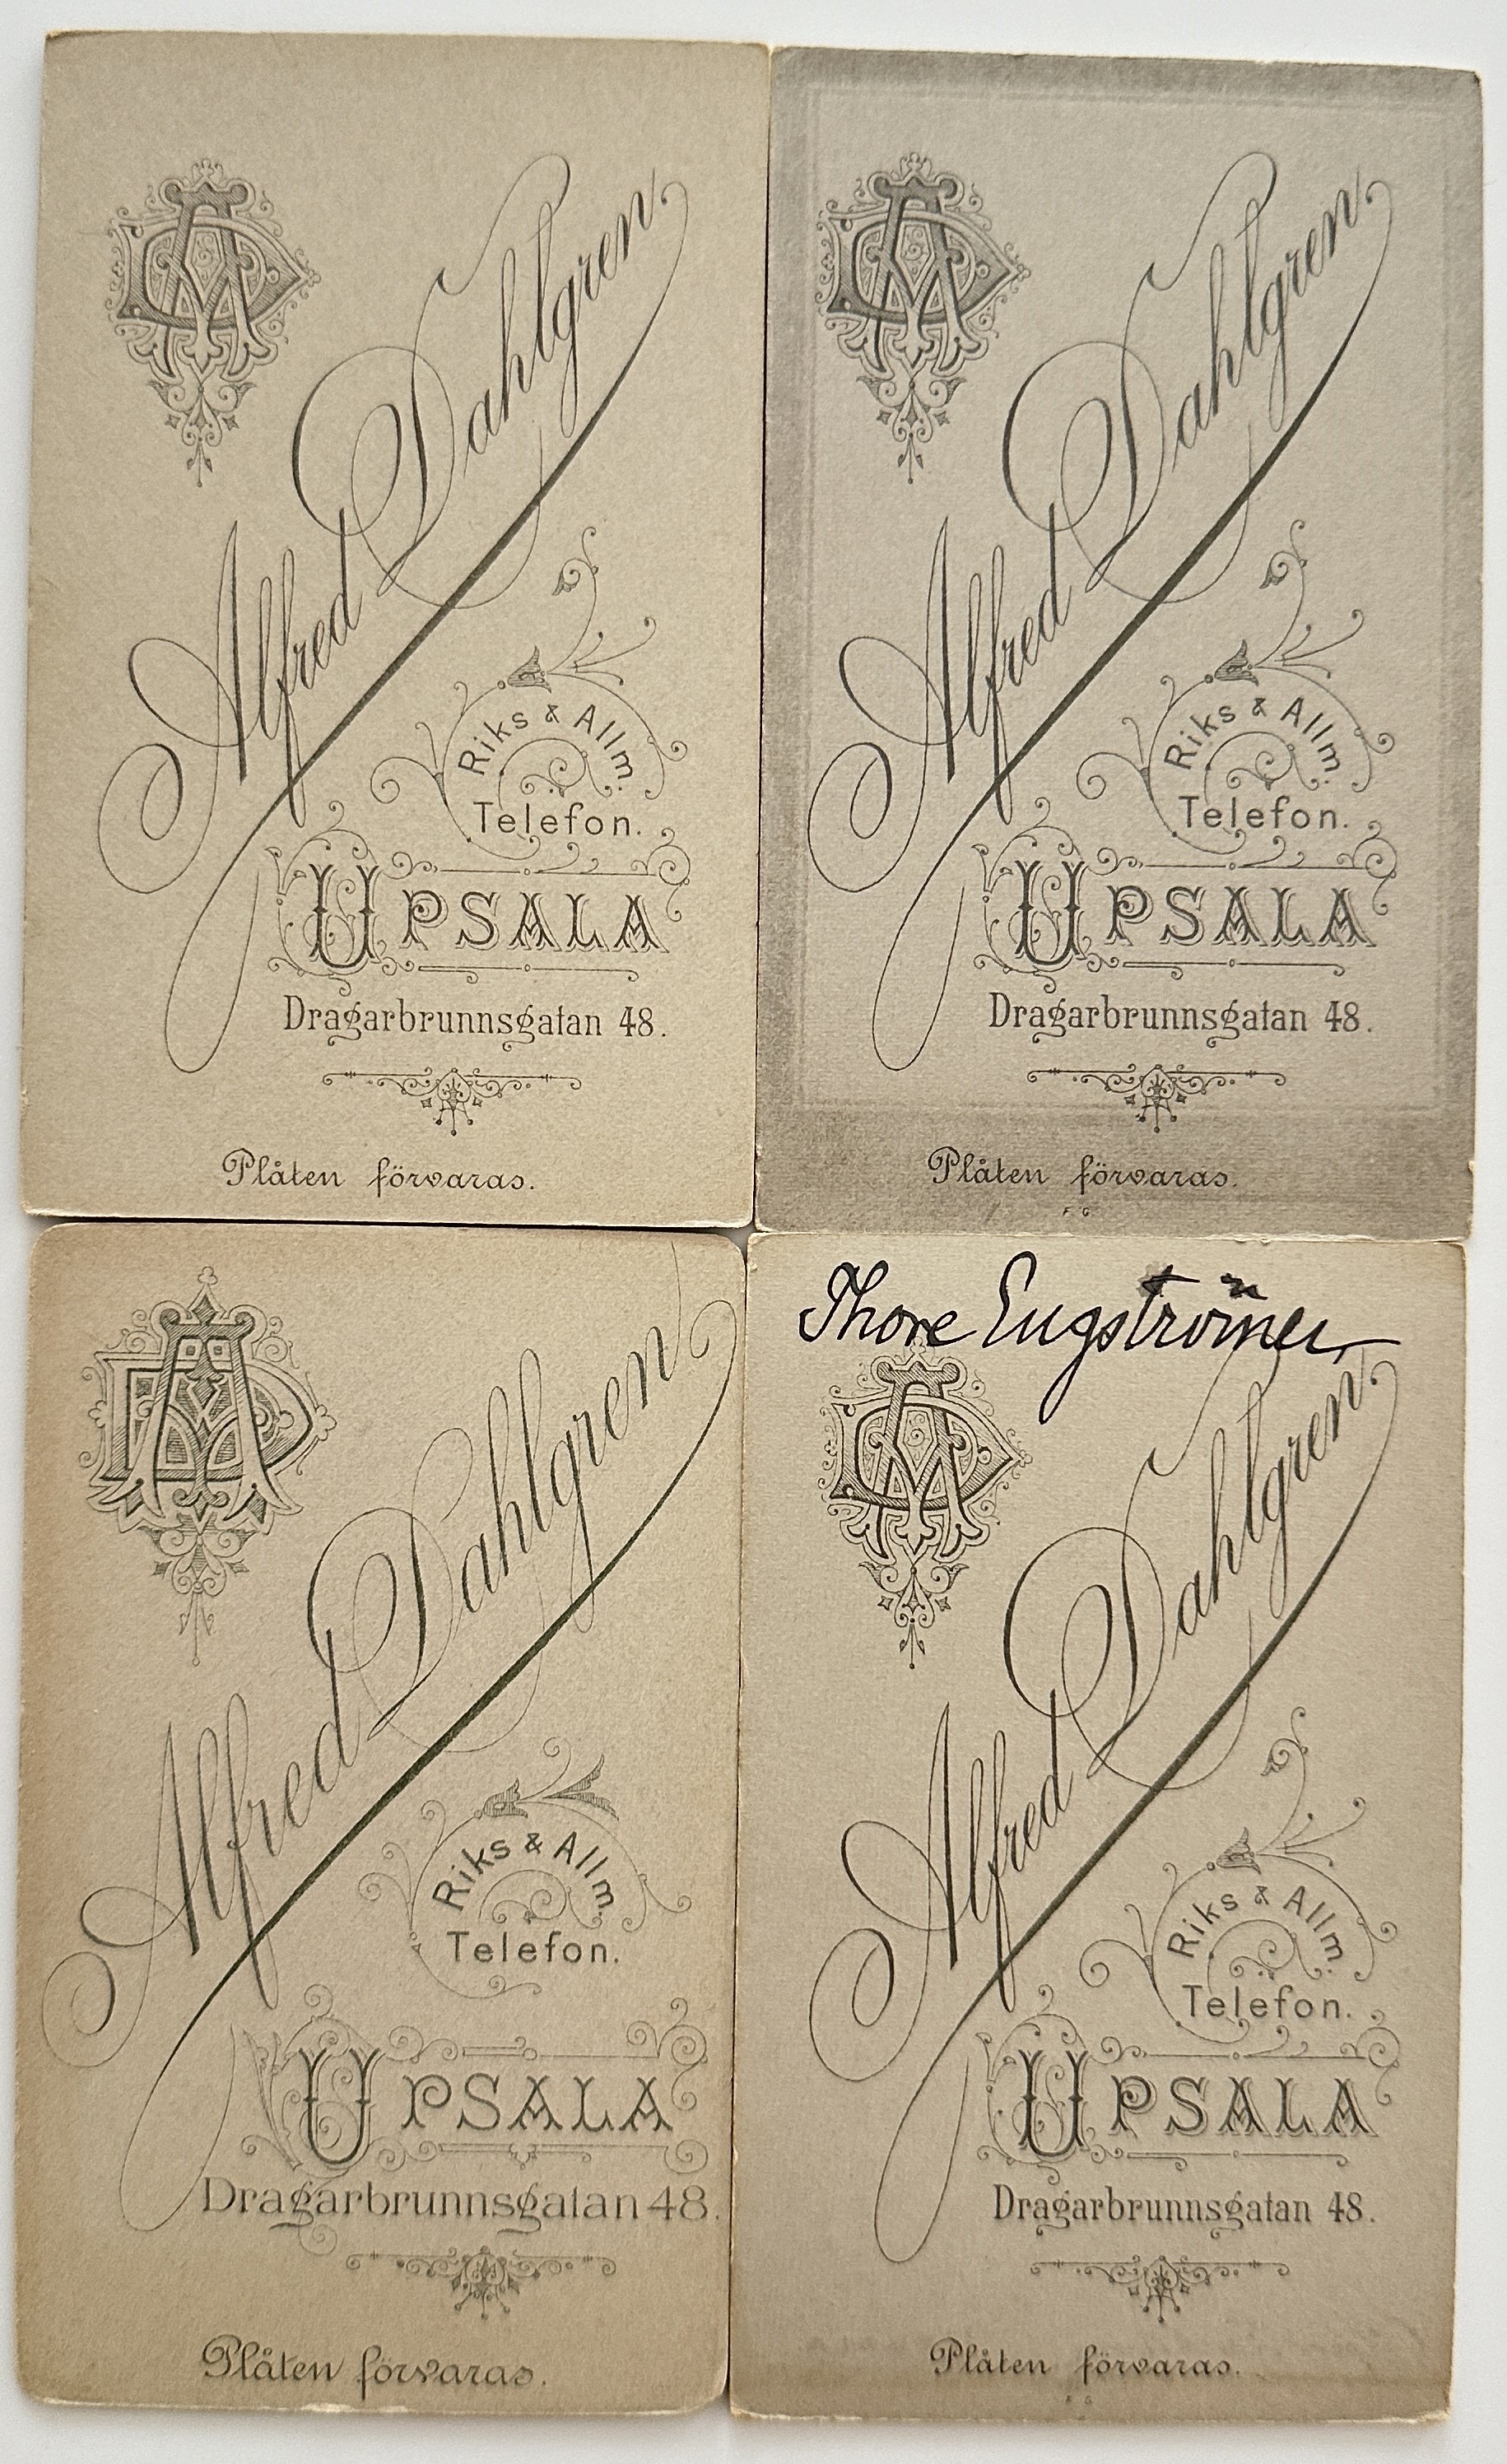 AD
Alfred Dahlgren.
Riks & Allm.
Telefon.
UPSALA
Dragarbrunnsgatan 48.
Plåten förvaras.
AD
Alfred Dahlgren.
Riks & Allm.
Telefon.
UPSALA
Dragarbrunnsgatan 48.
Plåten förvaras.
F G
AD
Alfred Dahlgren.
Riks & Allm.
Telefon.
UPSALA
Dragarbrunnsgatan 48.
Plåten förvaras.
Thore Engströmer
AD
Alfred Dahlgren.
Riks & Allm.
Telefon.
UPSALA
Dragarbrunnsgatan 48.
Plåten förvaras.
F G